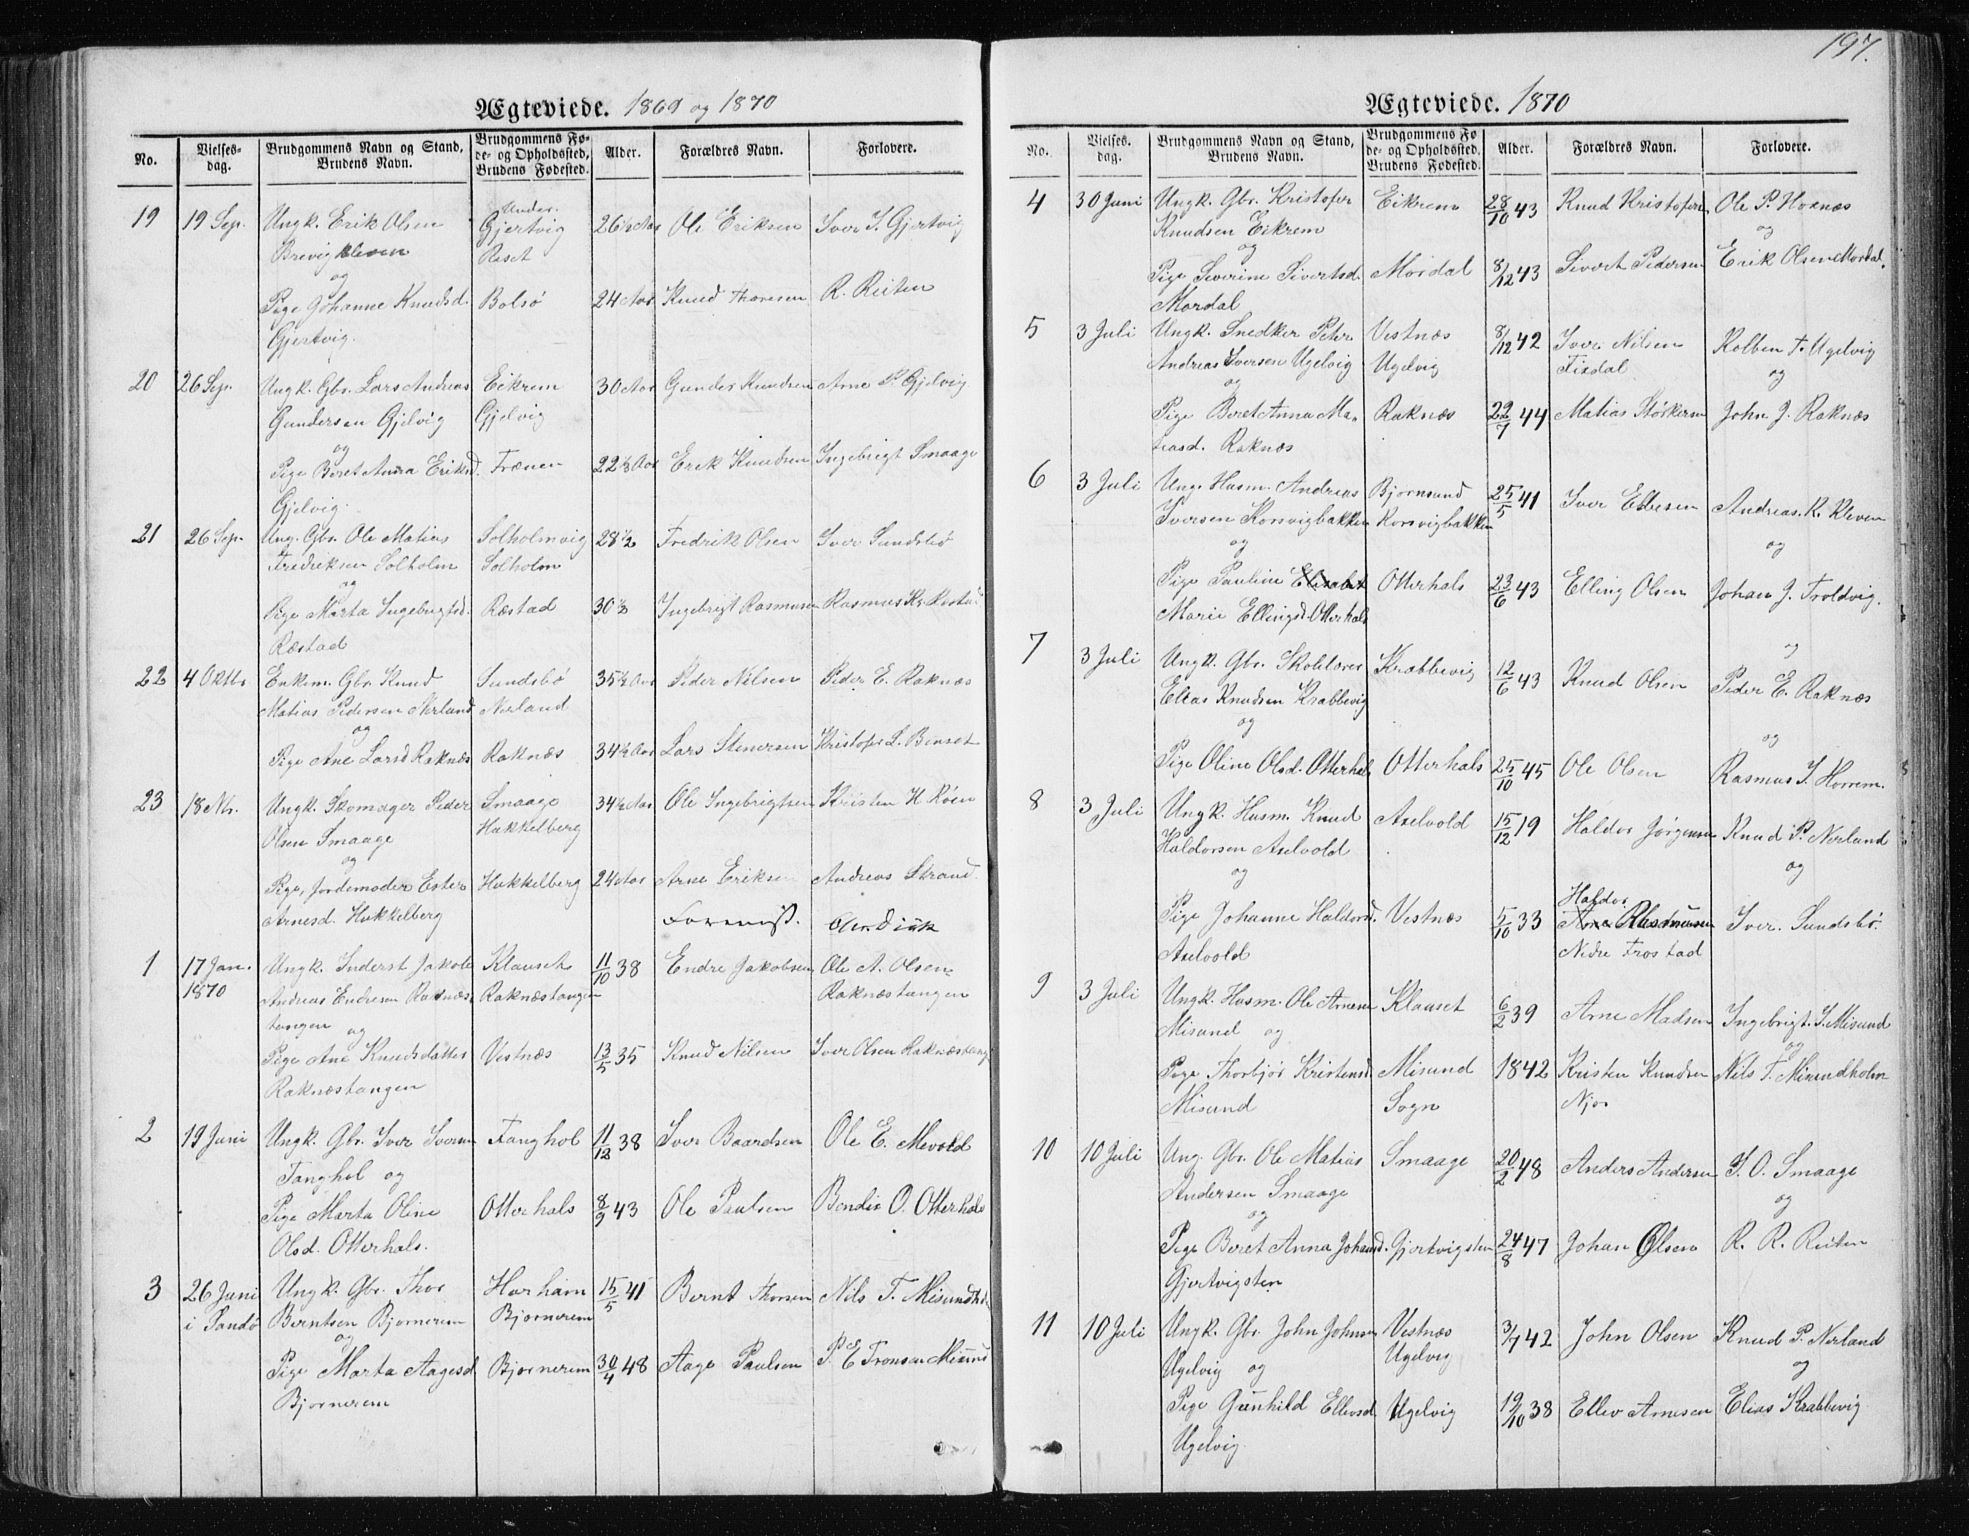 Ægteviede. 1869 og 1870
No.
Vielses-
dag.
Brudgommens Navn og Stand,
Brudens Navn.
Brudgommens Fø-
de- og Opholdssted,
Brudens Fødested.
Alder.
Forældres Navn.
Forlovere.
19 19 Sep. Ungk. Erik Olsen
Brevigkleven
og
Under.
Gjertvig
Røset
26½ Aar Ole Eriksen Iver I. Gjertvig
Pige Johanne Knudsd.
Gjertvig.
Bolsø 24 Aar Knud Thoresen R. Reiten
20 26 Sep. Ungk. Gbr. Lars Andreas
Gundersen Gjelvig
og
Eikrem
Gjelvig
30 Aar Gunder Knudsen Arne P. Gjelvig
Pige Beret Anna Eriksd.
Gjelvig.
Frænen 22½ Aar Erik Knudsen Ingebrigt Smaage
21 26 Sep. Ung. Gbr. Ole Matias
Fredriksen Solholm
og
Solholmvig
Solholm
28½ Fredrik Olsen Iver Sundsbø
Pige Marta Ingebrigtsd.
Ræstad
Ræstad 30½ Ingebrigt Rasmusen Rasmus Kr. Ræstad
22 4 Oktb. Enkem. Gbr. Knud
Matias Pedersen Nerland
og
Sundsbø
Nerland
35½ Aar Peder Nilsen Peder E. Raknæs
Pige Ane Larsd. Raknæs Raknæs 34½ Aar Lars Stenersen Kristofer L. Benset
23 18 Nr. Ungk. Skomager Peder
Olsen Smaage
og
Smaage
Hukkelberg
34½ Aar Ole Ingebrigtsen Kristen K. Røen
Pige, Jordemoder Ester
Arnesd. Hukkelberg
Hukkelberg 24 Aar Arne Eriksen Andreas Strand
1 17 Jan.
1870
Ungk. Inderst Jakob
Andreas Endresen Raknæs-
tangen og
Klauset
Raknæstangen
11/10 38 Endre Jakobsen Ole A. Olsen
Raknæstangen
Pige Ane Knudsdatter
Raknæstangen
Vestnæs 13/5 35 Knud Nilsen Iver Olsen Raknæstang
2 19 Juni Ungk. Gbr. Iver Iversen
Tanghol og
Tanghol 11/12 38 Iver Baardsen Ole E. Mevold
Pige Marta Oline
Olsd. Otterhals.
Otterhals 8/9 43 Ole Paulsen Bendix O. Otterhals
3 26 Juni
i Sandø
Ungk. Gbr. Thor
Berntsen Bjørnerem
og
Harham
Bjørnerem
15/5 41 Bernt Thorsen Nils T. Misundh.
Pige Marta Aagesd
Bjørnerem
Bjørnerem 30/4 48 Aage Paulsen P. E. Tronsen Misund
197.
Ægteviede. 1870
No.
Vielses-
dag.
Brudgommens Navn og Stand,
Brudens Navn.
Brudgommens Fø-
de- og Opholdssted,
Brudens Fødested.
Alder.
Forældres Navn.
Forlovere.
4 30 Juni Ungk. Gbr. Kristofer
Knudsen Eikrem
og
Eikrem 28/10 43 Knud Kristofersen Ole P. Hoxnæs
og
Pige Severine Sivertsd.
Mordal
Mordal 8/12 43 Sivert Pedersen Erik Olsen Mordal.
5 3 Juli Ungk. Snedker Peter
Andreas Iversen Ugelvig
og
Vestnæs
Ugelvig
8/12 42 Iver Nilsen
Fixdal
Kolben T. Ugelvig
og
Pige Beret Anna Ma-
tiasd. Raknæs
Raknæs 22/7 44 Matias Størkersen John J. Raknæs
6 3 Juli Ung. Husm. Andreas
Iversen Korsvigbakken
og
Bjørnsund
Korsvigbakken
25/5 41 Iver Ellesen Andreas K. Kleven
og
Pige Pauline Elisabet
Marie Ellingsd. Otterhals
Otterhals 23/6 43 Elling Olsen Johan J. Troldvig.
og
7 3 Juli Ungk. Gbr. Skolelærer
Elias Knudsen Krabbevig
og
Krabbevig 12/6 43 Knud Olsen Peder E. Raknæs
og
Pige Oline Olsd. Otterhals Otterhals 25/10 45 Ole Olsen Rasmus I. Horrem.
8 3 Juli Ungk. Husm. Knud
Haldorsen Axelvold
og
Axelvold 15/12 19 Haldor Jørgensen Knud P. Nerland
og
Pige Johanne Haldorsd.
Axelvold
Vestnæs 5/10 33 Haldor
Arne Rasmusen
Nedre Frostad
Iver Sundsbø.
9 3 Juli Ungk. Husm. Ole Arnesen
Misund og
Klauset 6/2 39 Arne Madsen Ingebrigt I. Misund
og
Pige Thorbjør Kristensd
Misund
Misund
Sogn
1842 Kristen Knudsen
Njøs
Nils T. Misundholm
10 10 Juli Ung. Gbr. Ole Matias
Andersen Smaage
og
Smaage 20/2 48 Anders Andersen I. O. Smaage
og
Pige Beret Anna Johansd.
Gjertvigsten
Gjertvigsten 24/8 47 Johan Olsen R. R. Reiten
11 10 Juli Ungk. Gbr. John Johnsen
Ugelvig og
Vestnæs
Ugelvig
3/7 42 John Olsen Knud P. Nerland
og
Pige Gunhild Ellevsd
Ugelvig.
Ugelvig 19/10 38 Ellev Arnesen Elias Krabbevig